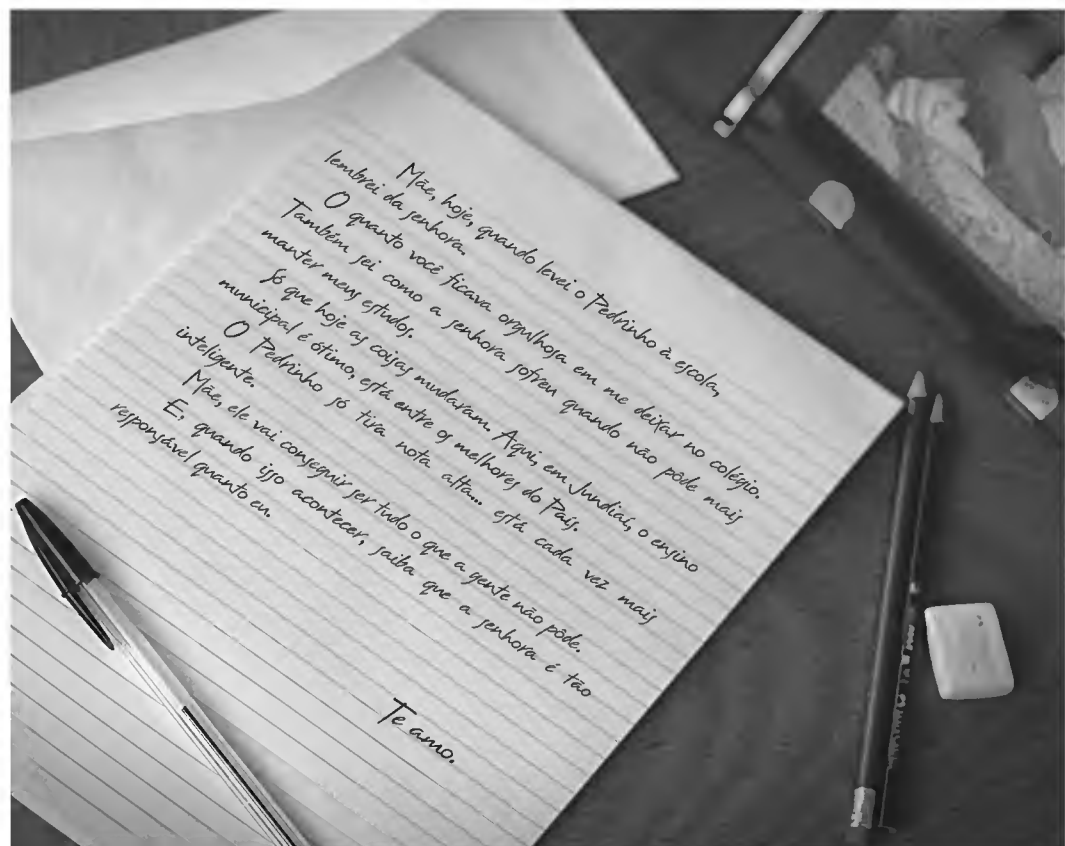 Mãe, hoje, quando levei o Pedrinho à escola,
lembrei da senhora.
O quanto você ficava orgulhosa em me deixar no colégio.
Também sei como a senhora sofreu quando não pôde mais
manter meus estudos.
Só que hoje as coisas mudaram. Aqui, em Jundiaí, o ensino
municipal é ótimo, está entre os melhores do País.
O Pedrinho só tira nota alta... está cada vez mais
inteligente.
Mãe, ele vai conseguir ser tudo o que a gente não pôde.
E, quando isso acontecer, saiba que a senhora é tão
responsável quanto eu.
Te amo.